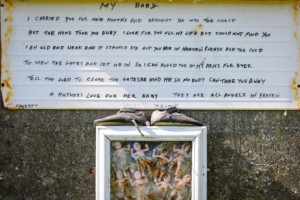 MY BABY
I CARRIED YOU FOR NINE MONTHS AND BROUGHT YOU INTO THE WORLD
BUT THE NUNS TOOK YOU AWAY I LOOK FOR YOU ALL MY LIFE BUT COULD NOT FIND YOU
I AM OLD AND WEAK AND IF I SHOULD DIE AND YOU ARE IN HEAVEN PLEASE ASK THE GOOD
TO OPEN THE GATES AND LET ME IN SO I CAN HOLD YOU IN MY ARMS FOR EVER
TELL THE LORD TO CLOSE THE GATES BEHIND ME SO NOBODY CAN TAKE YOU AWAY
A MOTHERS LOVE FOR HER BABY THEY ARE ALL ANGELS IN HEAVEN